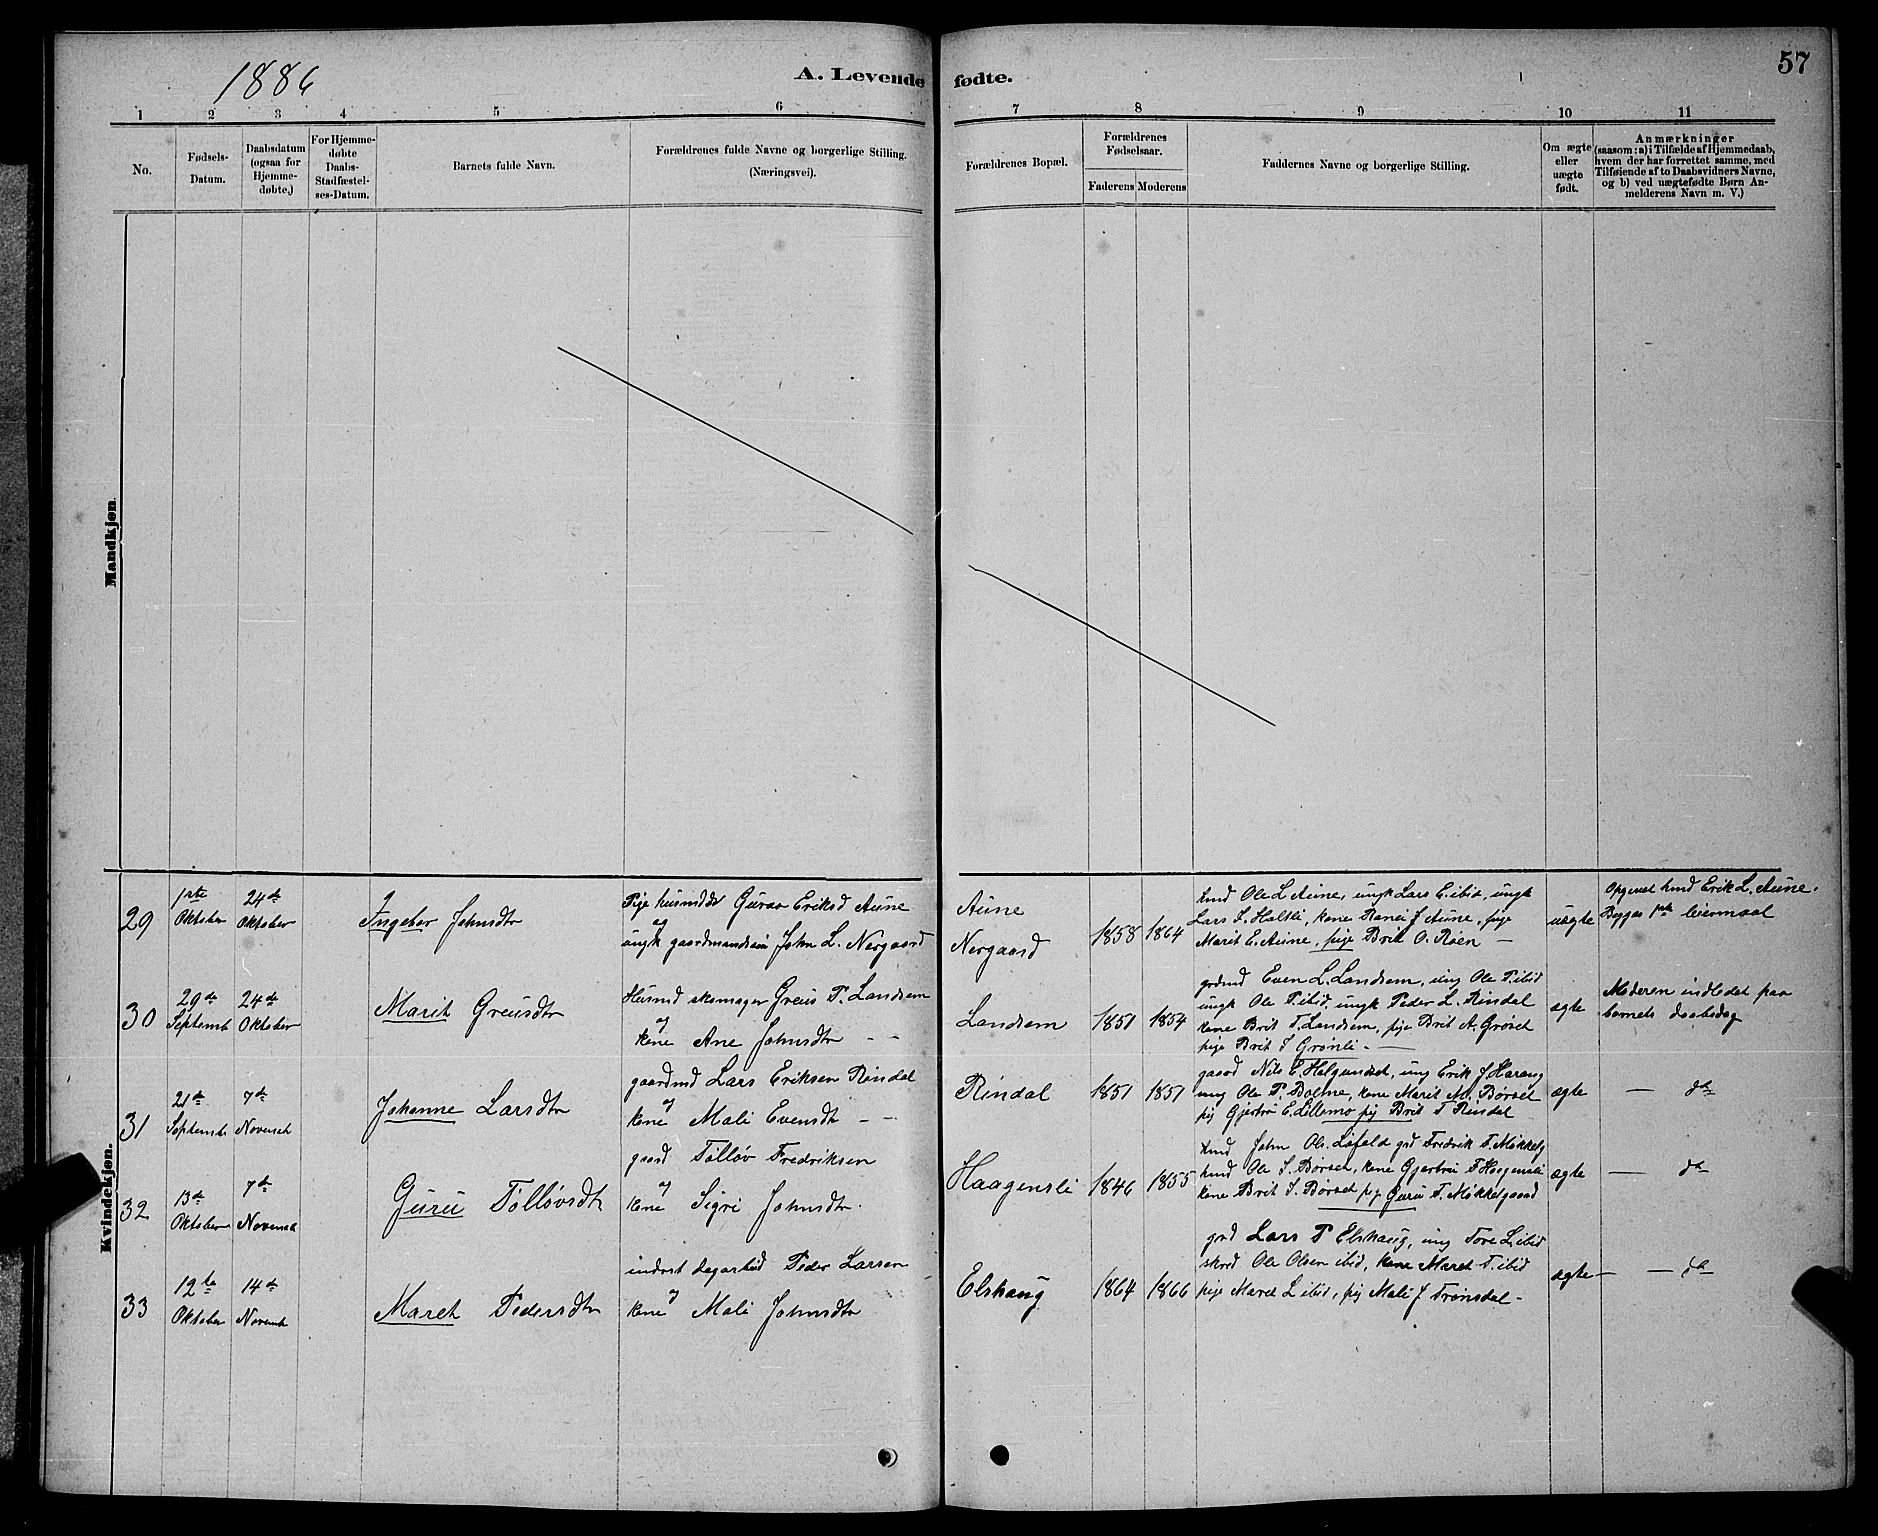 1886
A. Levende fødte.
57
1 2 3 4 5 6 7 8 9 10 11
No.
Fødsels-
Datum.
Daabsdatum
(ogsaa for
Hjemme-
døbte.)
For Hjemme-
døbte
Daabs-
Stadfæstel-
ses-Datum.
Barnets fulde Navn.
Forældrenes fulde Navne og borgerlige Stilling.
(Næringsvei).
Forældrenes Bopæl.
Forældrenes
Fødselsaar.
Faderens Moderens
Faddernes Navne og borgerlige Stilling.
Om ægte
eller
uægte
født.
Anmærkninger
(saasom: a) i Tilfælde af Hjemmedaab,
hvem der har forrettet samme, med
Tilføiende af to Daabsvidners Navne,
og b) ved uægtefødte Børn An-
melderens Navn m. V.)
Mandkjøn.
Kvindekjøn.
29
1ste
Oktober
24de
Oktober
Ingebor Johnsdtr
Pige husmdds Guroo Eriksd Aune
og
ungk gaardmandssøn John L. Nergaard
Aune
Nergaard
1858 1864
husmd Ole L Aune, ungk Lars E. ibid, ungk
Lars L. Haltli, kone Ranei J Aune, pige
Marit E. Aune, pige Brit O. Røen —
uægte
Opgivet husmd Erik L. Aune.
Begges 1ste leiermaal
30
29de
Septembr
24de
Oktober
Marit Greusdtr
Husmd skomager Greus P. Landsem
og
kone Ane Johnsdtr - -
Landsem
1851 1854
grdmd Even L. Landsem, ung Ole P. ibid
ungk Ole P. ibid, ungk Peder L. Rindal
kone Brit T. Landsem, pige Brit A. Grøset
pige Brit I Grønli. —
ægte
Moderen indledet paa
barnets daabsdag
31
21de
Septembr
7de
Novembr
Johanne Larsdtr
gaardmd Lars Eriksen Rindal
og
kone Mali Evensdt —
Rindal
1851 1851
gaard Nils E. Helgundset, ung Erik J Haraug
ung Ole P. Bolme, kone Marit A. Børset
pig Gjertru E. Lillemo pig Brit T Rindal
ægte
— do
32
13de
Oktober
7de
Novembr
Guru Tolløvsdt
gaard Tolløv Fredriksen
og
kone Sigri Johnsdtr.
Haagensli
1846 1855
husmd John Ols. Løfald grd Fredrik T. Mokkelg
husmd Ole I. Børset, kone Gjertru F Haagensli
kone Brit I. Børset pig. Guru F. Mokkelgaard
ægte
— do
33
12te
Oktober
14de
Novembr
Maret Pedersdtr
inderst dagarbeid Peder Larsen
og
kone Mali Johnsdtr
Elshaug
1864 1866
grd Lars P Elshaug, ung Tore L. ibid
skred Ole Olsen ibid, kone Maret T. ibid
pige Maret L ibid, pig Mali J Trønsdal -
ægte
— do